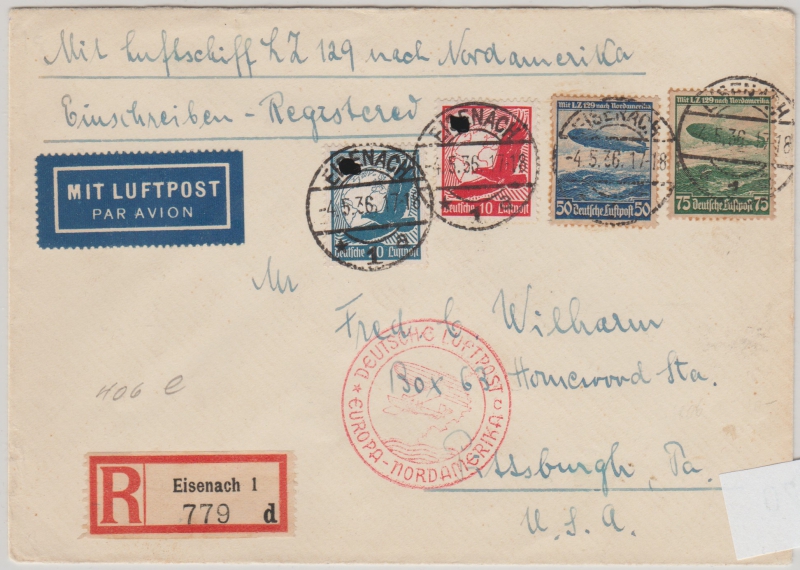 Mit Luftschiff LZ 129 nach Nordamerika
Einschreiben - Registered
MIT LUFTPOST
PAR AVION
EISENACH
-4.5.36.17-18
* 1 b
Deutsche 10 Luftpost
EISENACH
-4.5.36.17-18
1
Deutsche 10 Luftpost
Mit LZ 129 nach Nordamerika
EISENACH
-4.5.36.17-18
50 Deutsche Luftpost 50
Mit LZ 129 nach Nordamerika
EISENACH
5.36. 18
1
75 Deutsche Luftpost 75
Mr
Fred C. Wilharm
Box 63 Homewood Sta.
Pittsburgh, Pa.
U. S. A.
DEUTSCHE LUFTPOST
* EUROPA-NORDAMERIKA
406 e
R
Eisenach 1
779 d